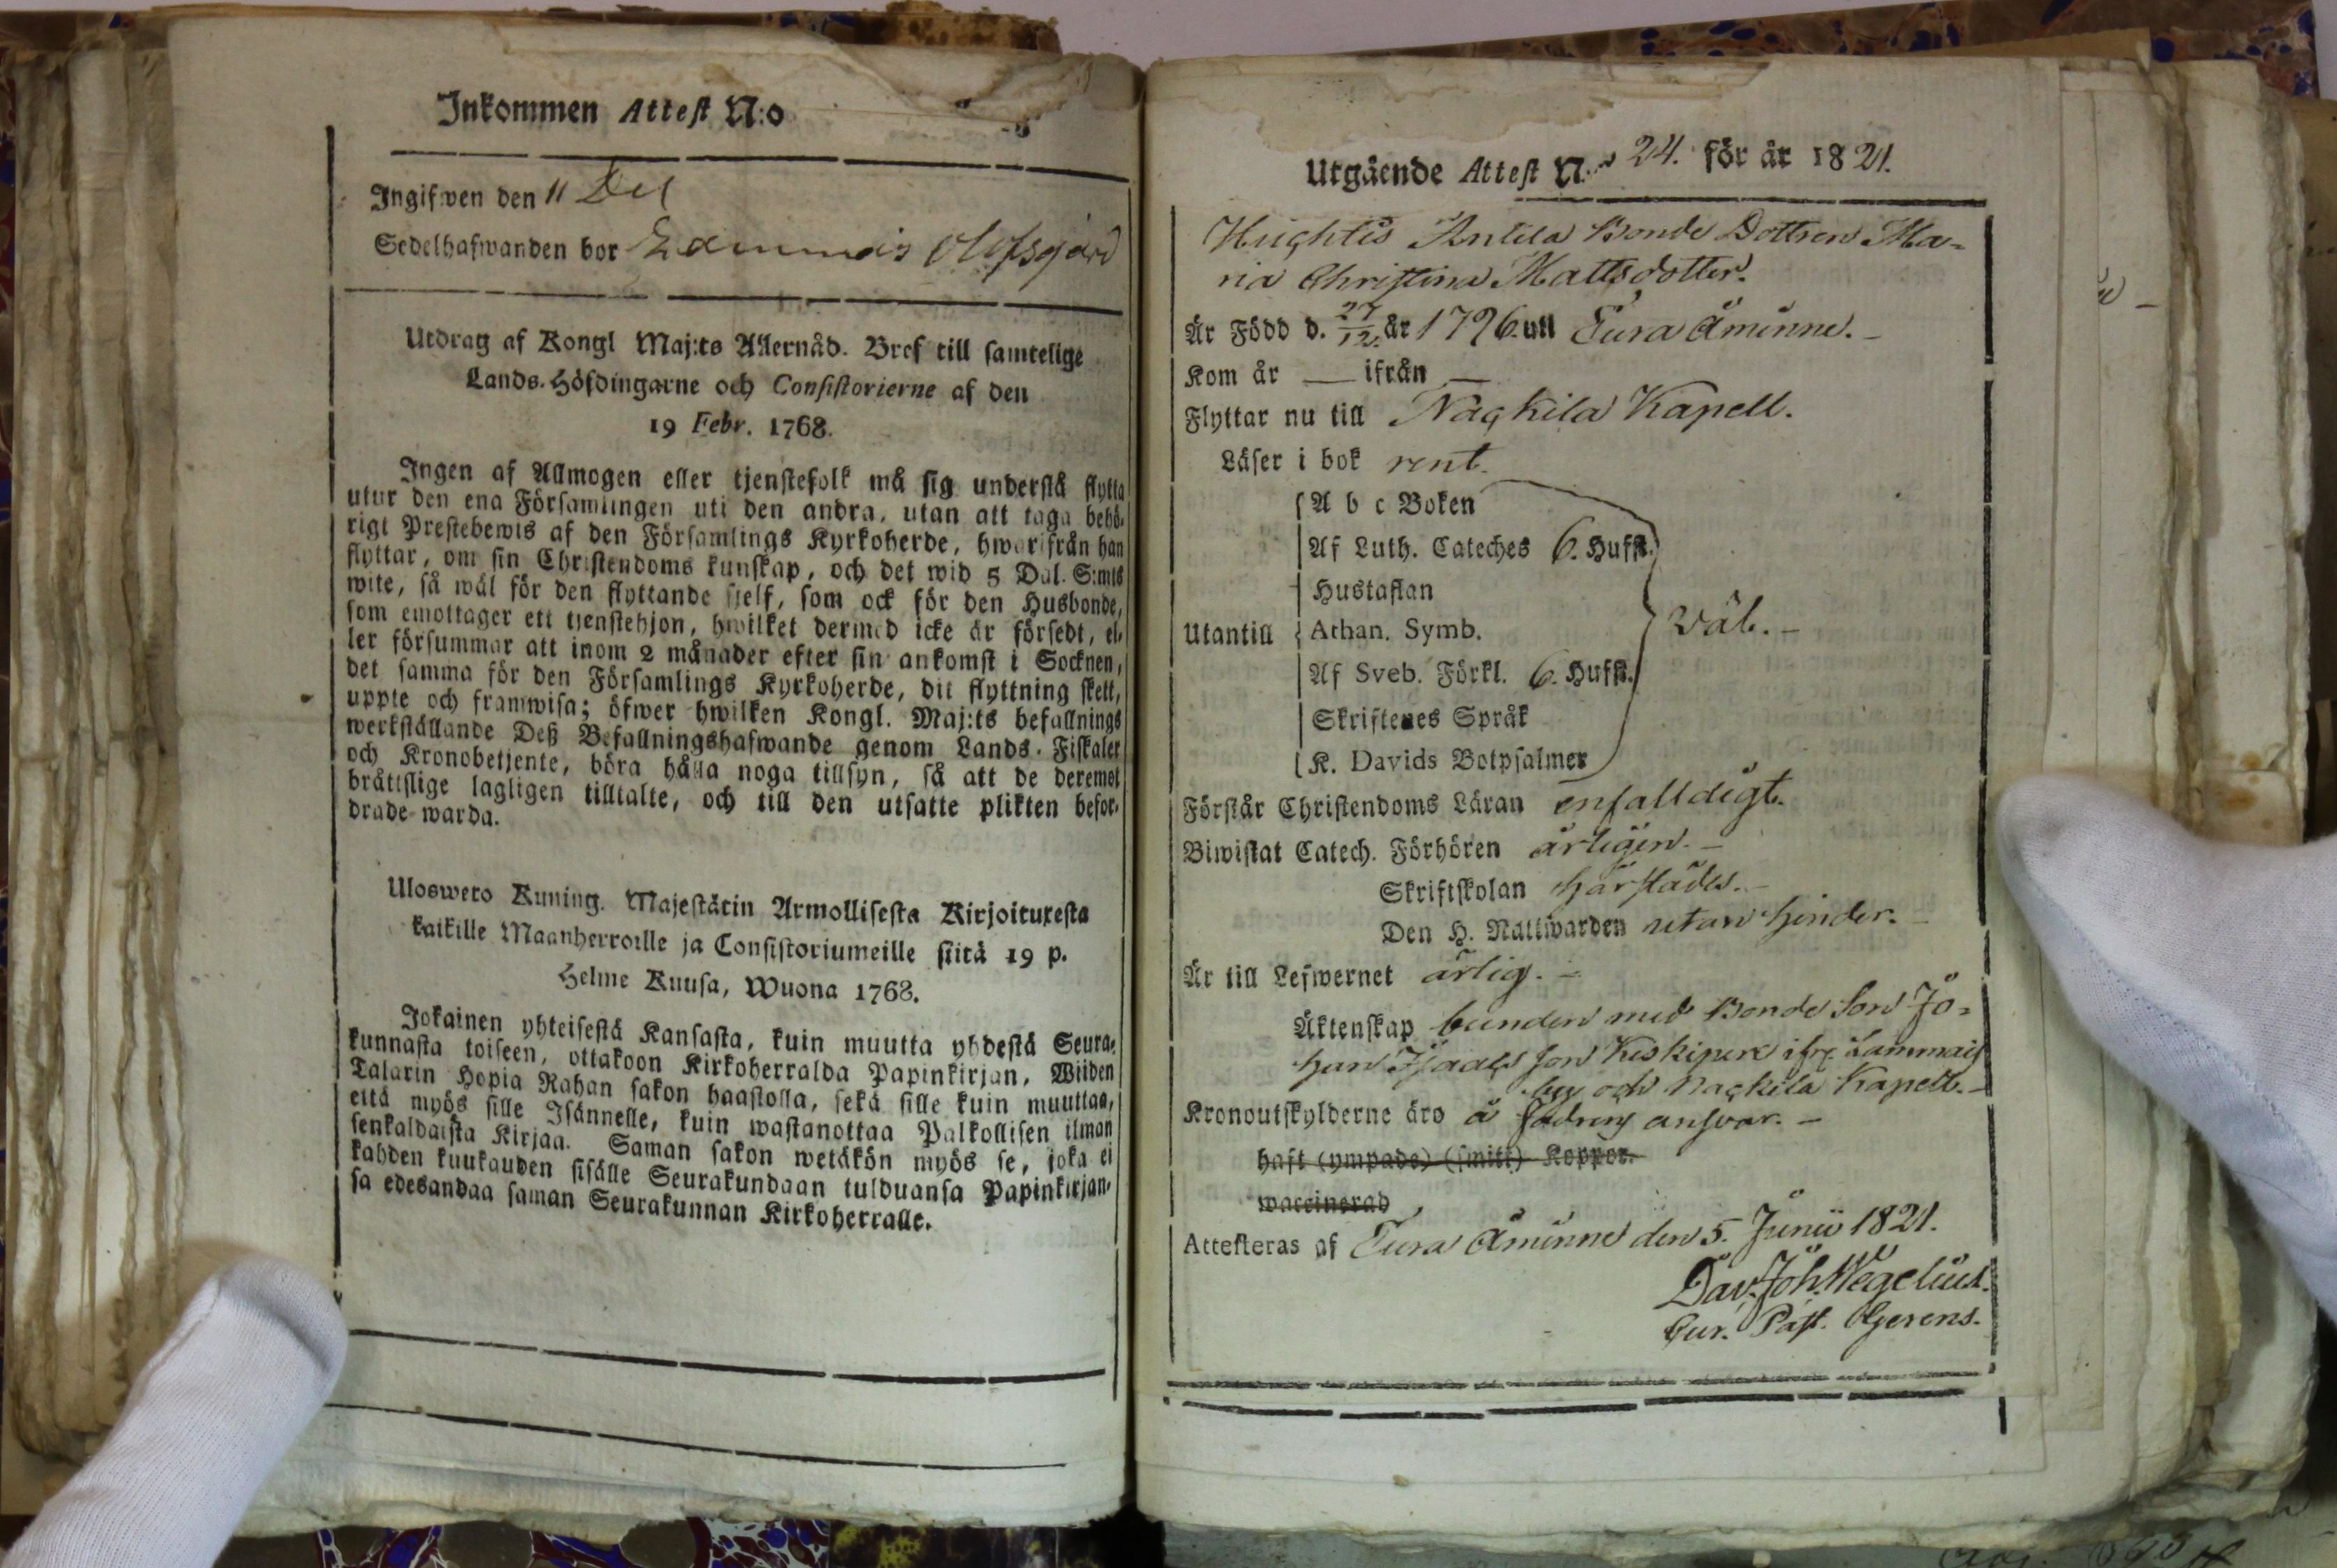 Inkommen Attest N:o
Ingifwen den 11 Dec
Sedelhafwanden bor Olofsgård
Utdrag af Kongl Maj:ts Allernåd. Bref till samtelige
Lands-Höfdingarne och Consistorierne af den
19 Febr. 1768.
Ingen af Allmogen eller tjenstefolk må sig understå flytta
utur den ena Församlingen uti den andra, utan att taga behö-
rigt Prestebewis af den Församlings Kyrkoherde, hwarifrån han
flyttar, om sin Christendoms kunskap, och det wid 5 Dal. S:mts
wite, så wäl för den flyttande sjelf, som ock för den Husbonde,
som emottager ett tjenstehjon, hwilket dermed icke är försedt, el-
ler försummar att inom 2 månader efter sin ankomst i Socknen,
det samma för den Församlings Kyrkoherde, dit flyttning skett,
uppte och framwisa; öfwer hwilken Kongl. Maj:ts befallnings
werkställande Deß Befallningshafwande genom Lands-Fiskaler
och Kronobetjente, böra hålla noga tillsyn, så att de deremot
bråttslige lagligen tilltalte, och till den utsatte plikten befor-
drade warda.
Ulosweto Kuning. Majestätin Armollisesta Kirjoituxesta
kaikille Maanherroille ja Consistoriumeille siitä 19 p.
Helme Kuusa, Wuona 1768.
Jokainen yhteisestä Kansasta, kuin muutta yhdestä Seura-
kunnasta toiseen, ottakoon Kirkoherralda Papinkirjan, Wiiden
Talarin Hopia Rahan sakon haastolla, sekä sille kuin muuttaa,
että myös sille Isännelle, kuin wastanottaa Palkollisen ilman
senkaldaista Kirjaa. Saman sakon wetäkön myös se, joka ei
kahden kuukauden sisälle Seurakundaan tulduansa Papinkirjan-
sa edesandaa saman Seurakunnan Kirkoherralle.
Utgående Attest N:o 24. för år 1821.
Hughtis Anlila Bonde Dottren Ma-
ria Christina Mattsdotter.
Är Född d. 27/12. år 1796. uti Eura Åminne. -
Kom år — ifrån —
Flyttar nu till Nackila Kapell.
Läser i bok rent.
A b c Boken
Af Luth. Cateches 6. Hufst.
Hustaflan
Utantill Athan. Symb. wäl. -
Af Sveb. Förkl. 6. Hufst.
Skriftenes Språk
K. Davids Botpsalmer
Förstår Christendoms Läran enfalldigt.
Biwistat Catech. Förhören årligen. -
Skriftskolan härstädes. -
Den H. Nattwarden utan hinder. -
Är till Lefwernet ärlig. -
Äktenskap bunden med Bonde Son Jo-
han Isaacs son Keskipere ifr. Lammais
by och Nackila Kapell. -
Kronoutskylderne äro å fadrens answar. -
haft (ympade) (smitt) Koppor.
waccinerad
Attesteras af Eura Åminne den 5. Junii 1821.
Dav. Joh. Wegelius.
Cur. Past. Gerens.